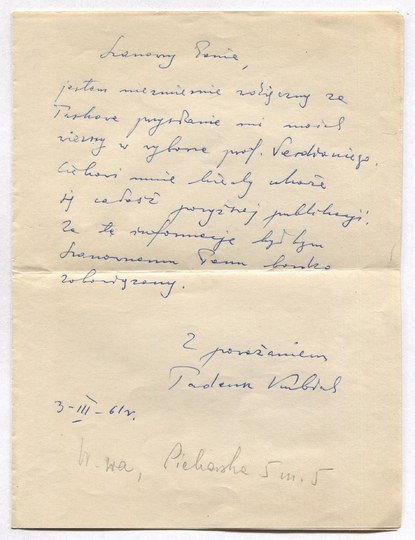 Szanowny Panie,
jestem niezmiernie wdzięczny za
łaskawe przysłanie mi moich
wierszy w wyborze prof. Verdianiego.
Ciekawi mnie kiedy ukaże
się całość powyższej publikacji.
Za tę informację byłbym
Szanownemu Panu bardzo
zobowiązany.
Z poważaniem
Tadeusz Kubiak
3-III-61r.
W-wa, Piekarska 5 m. 5